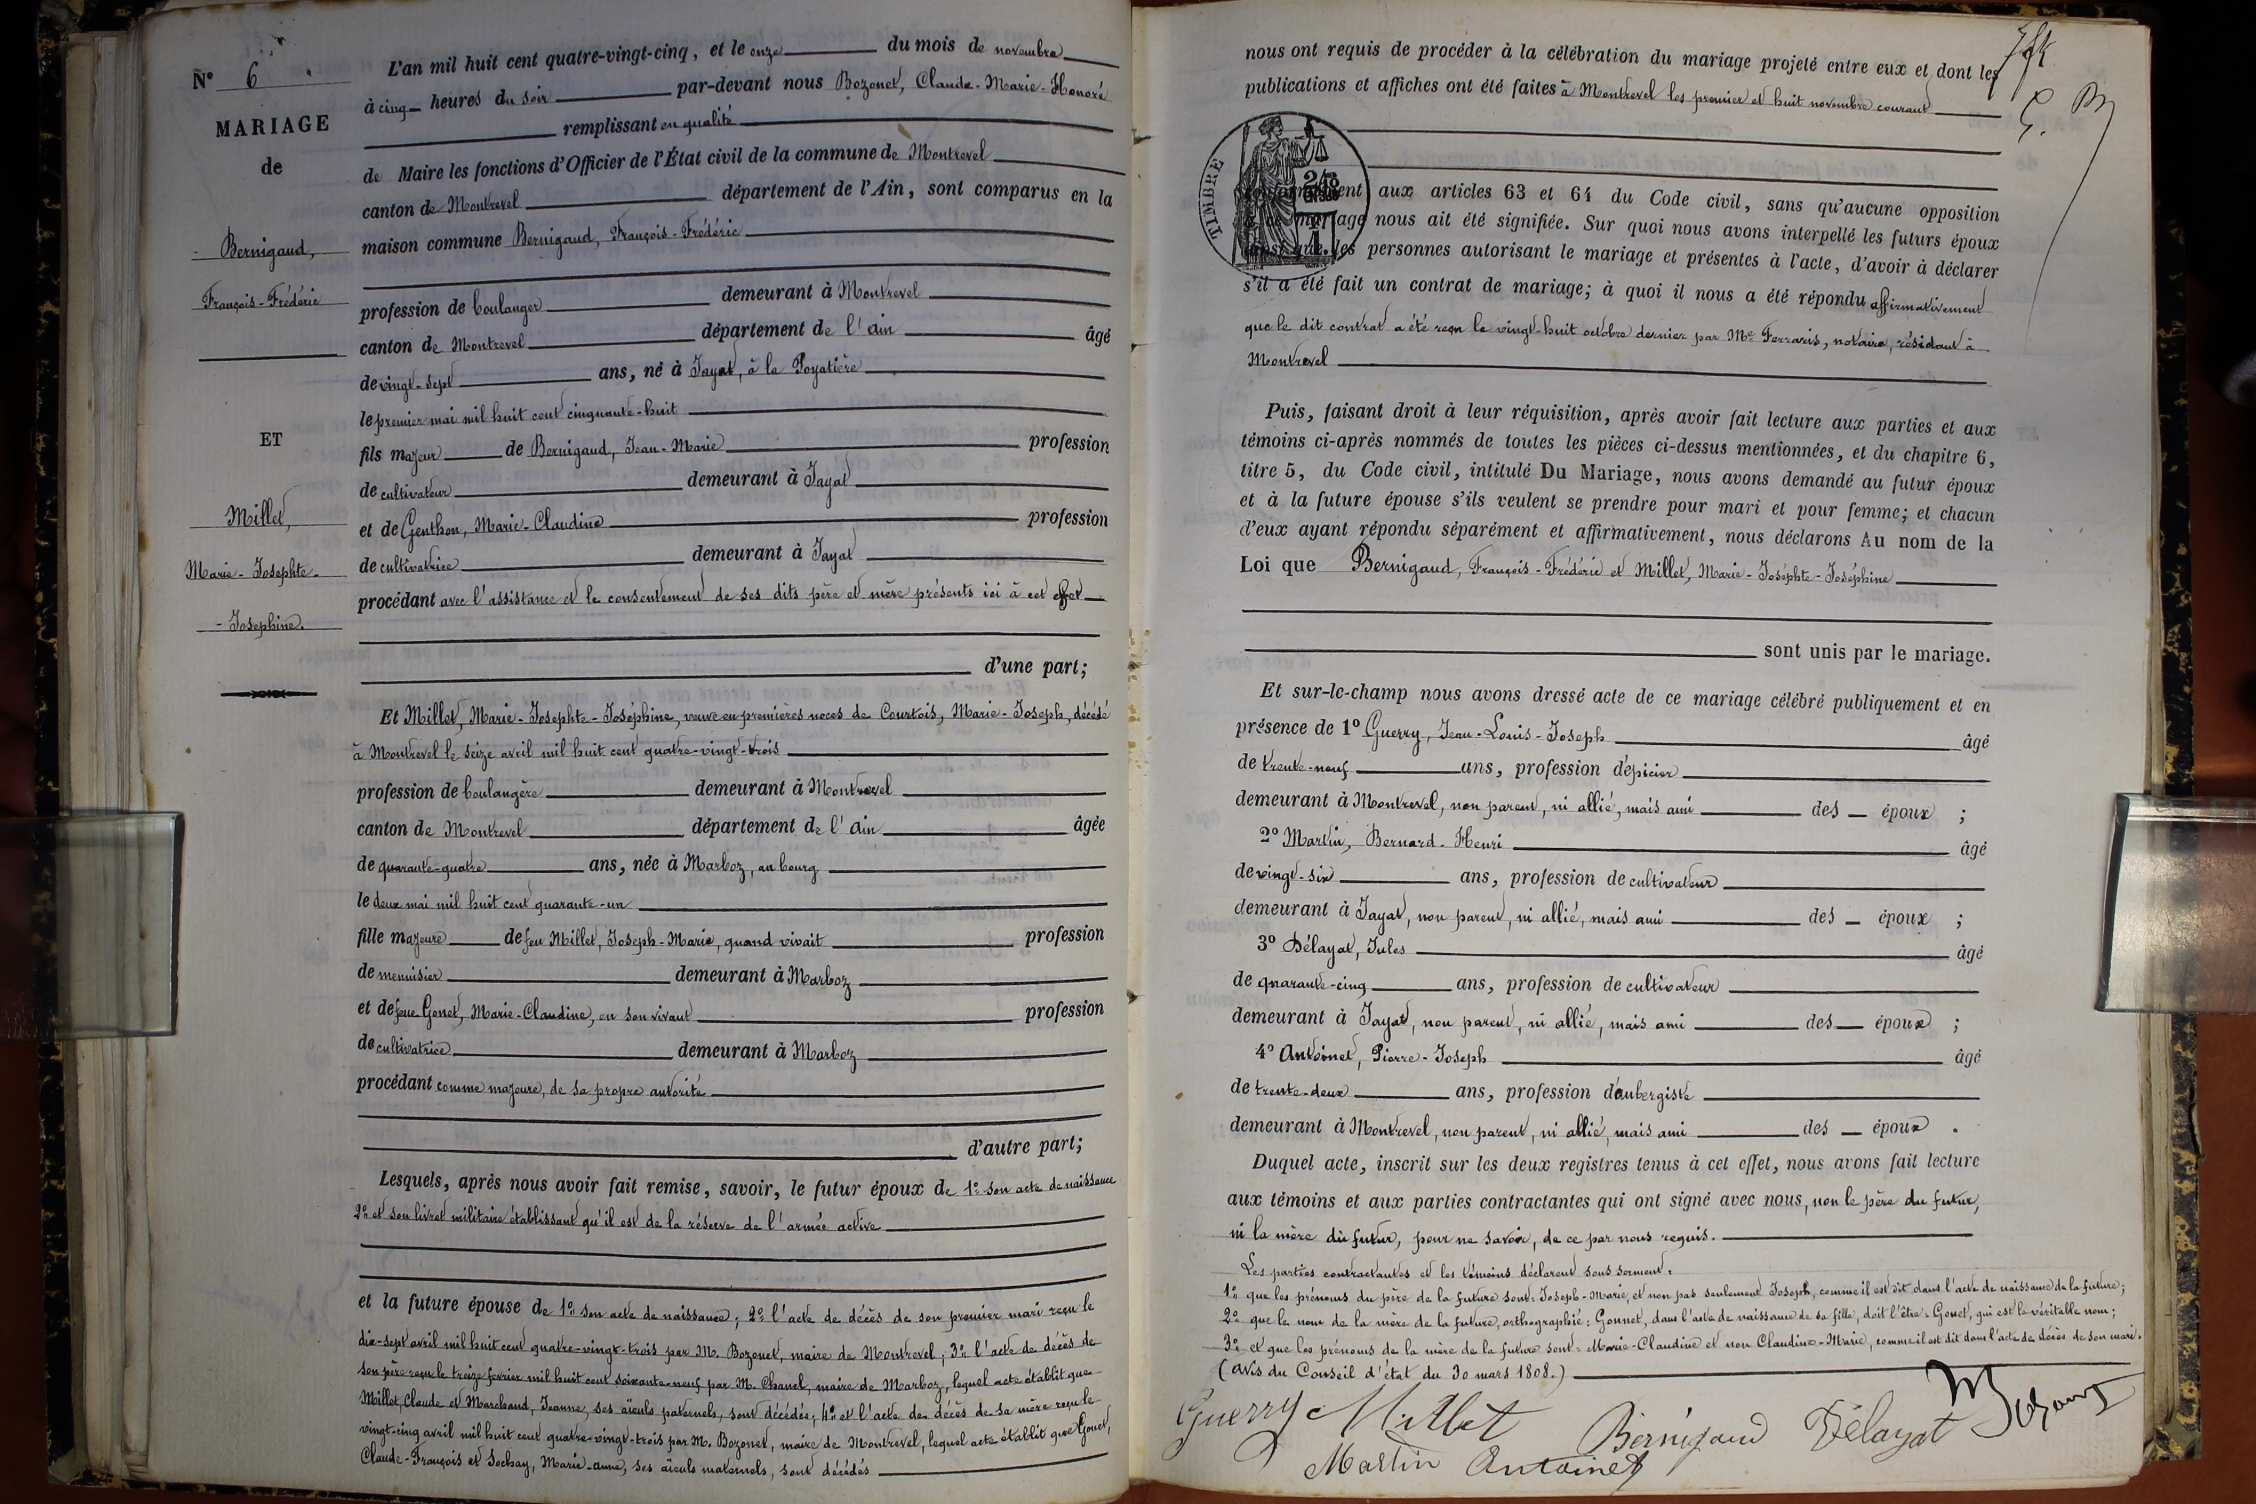 N° 6
MARIAGE
de
Bernigaud,
François-Frédéric
ET
Millet,
Marie-Josephte-
-Josephine.
L'an mil huit cent quatre-vingt-cinq, et le onze du mois de novembre
à cinq heures du soir par-devant nous Bozonet, Claude-Marie-Honoré
remplissant en qualité
de Maire les fonctions d'Officier de l'État civil de la commune de Montrevel
canton de Montrevel département de l'Ain, sont comparus en la
maison commune Bernigaud, François-Frédéric
profession de boulanger demeurant à Montrevel
canton de Montrevel département de l'ain âgé
de vingt-sept ans, né à Jayat, à la Poyatière
le premier mai mil huit cent cinquante-huit
fils majeur de Bernigaud, Jean-Marie profession
de cultivateur demeurant à Jayat
et de Genthon, Marie-Claudine profession
de cultivatrice demeurant à Jayat
procédant avec l'assistance et le consentement de ses dits père et mère présents ici à cet effet
d'une part;
Et Millet, Marie-Josephte-Joséphine, veuve en premières noces de Courtois, Marie-Joseph, décédé
à Montrevel le seize avril mil huit cent quatre-vingt-trois
profession de boulangère demeurant à Montrevel
canton de Montrevel département de l'ain âgée
de quarante-quatre ans, née à Marboz, au bourg
le deux mai mil huit cent quarante-un
fille majeure de feu Millet, Joseph-Marie, quand vivait profession
de menuisier demeurant à Marboz
et de feue Gonet, Marie-Claudine, en son vivant profession
de cultivatrice demeurant à Marboz
procédant comme majeure, de sa propre autorité
d'autre part;
Lesquels, après nous avoir fait remise, savoir, le futur époux de 1° son acte de naissance
2° et son livret militaire établissant qu'il est de la réserve de l'armée active
et la future épouse de 1° son acte de naissance; 2° l'acte de décès de son premier mari reçu le
dix-sept avril mil huit cent quatre-vingt-trois par M. Bozonet, maire de Montrevel; 3° l'acte de décès de
son père reçu le treize fevrier mil huit cent soixante-neuf par M. Chanel, maire de Marboz, lequel acte établit que
Millet, Claude et Marchand, Jeanne, ses aïeuls paternels, sont décédés, 4° et l'acte de décès de sa mère reçu le
vingt-cinq avril mil huit cent quatre-vingt-trois par M. Bozonet, maire de Montrevel, lequel acte établit que Gonet,
Claude-François et Sochay, Marie-anne, ses aïeuls maternels, sont décédés
nous ont requis de procéder à la célébration du mariage projeté entre eux et dont les
publications et affiches ont été faites à Montrevel les premier et huit novembre courant
TIMBRE
aux articles 63 et 64 du Code civil, sans qu'aucune opposition
nous ait été signifiée. Sur quoi nous avons interpellé les futurs époux
les personnes autorisant le mariage et présentes à l'acte, d'avoir à déclarer
s'il a été fait un contrat de mariage; à quoi il nous a été répondu affirmativement
que le dit contrat a été reçu le vingt-huit octobre dernier par Me Ferraris, notaire, résidant à
Montrevel
Puis, faisant droit à leur réquisition, après avoir fait lecture aux parties et aux
témoins ci-après nommés de toutes les pièces ci-dessus mentionnées, et du chapitre 6,
titre 5, du Code civil, intitulé Du Mariage, nous avons demandé au futur époux
et à la future épouse s'ils veulent se prendre pour mari et pour femme; et chacun
d'eux ayant répondu séparément et affirmativement, nous déclarons Au nom de la
Loi que Bernigaud, François-Frédéric et Millet, Marie-Joséphte-Joséphine
sont unis par le mariage.
Et sur-le-champ nous avons dressé acte de ce mariage célébré publiquement et en
présence de 1° Guerry, Jean-Louis-Joseph âgé
de trente-neuf ans, profession d'épicier
demeurant à Montrevel, non parent, ni allié, mais ami des époux ;
2° Martin, Bernard-Henri âgé
de vingt-six ans, profession de cultivateur
demeurant à Jayat, non parent, ni allié, mais ami des époux ;
3° Délayat, Jules âgé
de quarante-cinq ans, profession de cultivateur
demeurant à Jayat, non parent, ni allié, mais ami des époux ;
4° Antoinet, Pierre-Joseph âgé
de trente-deux ans, profession d'aubergiste
demeurant à Montrevel, non parent, ni allié, mais ami des époux .
Duquel acte, inscrit sur les deux registres tenus à cet effet, nous avons fait lecture
aux témoins et aux parties contractantes qui ont signé avec nous, non le père du futur,
ni la mère du futur, pour ne savoir, de ce par nous requis.
Les parties contractantes et les témoins déclarent sous serment:
1° que les prénoms du père de la future sont: Joseph-Marie, et non pas seulement Joseph, comme il est dit dans l'acte de naissance de la future;
2° que le nom de la mère de la future, orthographié: Gonnet, dans l'acte de naissance de sa fille, doit l'être: Gonet, qui est le véritable nom;
3° et que les prénoms de la mère de la future sont: Marie-Claudine et non Claudine-Marie, comme il est dit dans l'acte de décès de son mari.
(avis du Conseil d'état du 30 mars 1808.)
Guerry Millet Bernigaud Délayat Bozonet
Martin Antoinet